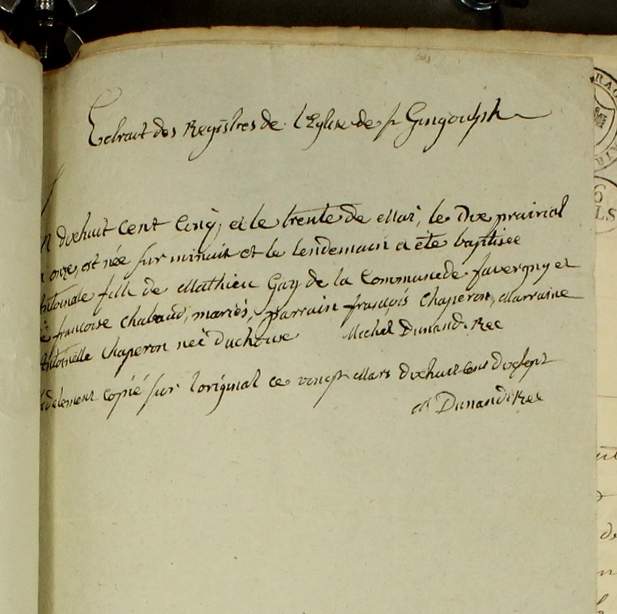 Extrait des Registres de l'Eglise de St Gingolph
n dixhuit cent cinq, et le trente de Mai, le Dix prairial
onze, est née sur minuit et le lendemain a été baptisée
ntoinate fille de Mathieu Gay de la Commune de faverny et
françoise Chabaud, mariés, parrain françois Chaperon, Marraine
ntoinette Chaperon née Duchoux Michel Dunand Rec
delement copié sur l'original ce vingt Mars dixhuit cent dixsept
M Dunand Rec